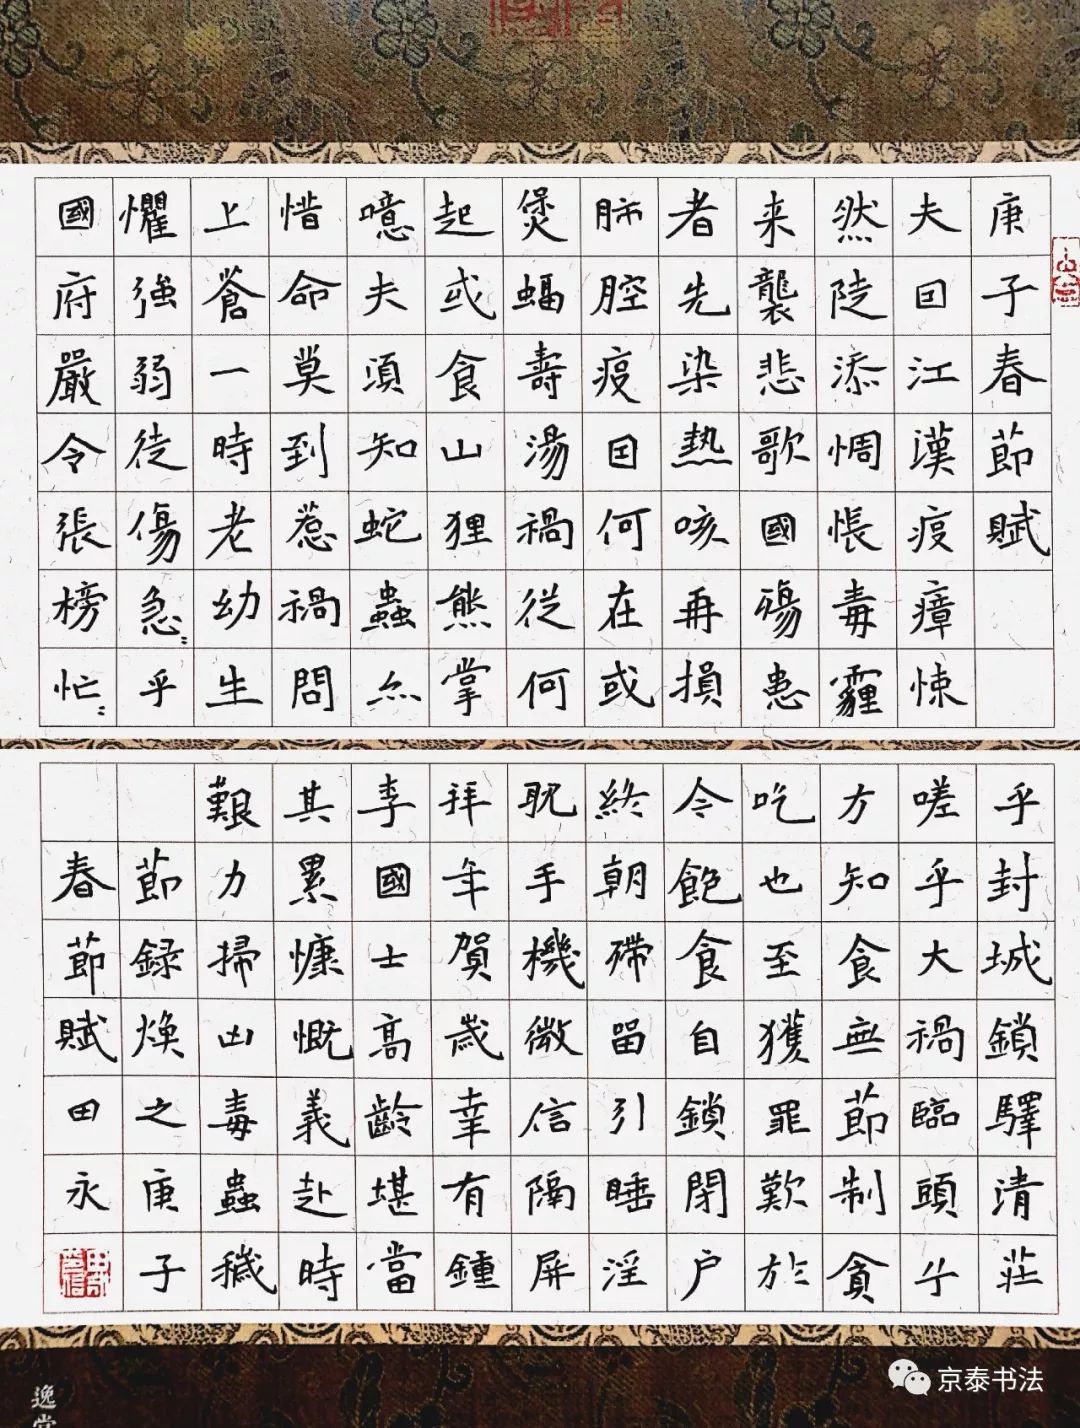 庚子春節賦
夫回江漢疫瘴悚
然陡添惆悵毒霾
来襲悲歌國殤患
者先染熱咳再損
肺腔疫囙何在或
煲蝠壽湯禍從何
起或食山狸熊掌
噫夫須知蛇蟲亦
惜命莫到惹禍問
上蒼一時老幼生
懼強弱徒傷急〻乎
國府嚴令張榜忙〻
乎封城鎖驛清莊
嗟乎大禍臨頭乍
方知食無節制貪
吃也至獲罪歎於
今飽食自鎖閉户
終朝滯留引睡淫
耽手機微信隔屏
拜年賀歲幸有鍾
李國士高齡堪當
其累慷慨義赴時
艱力掃凶毒蟲穢
節録煥之庚子
春節賦田永
逸
京泰书法